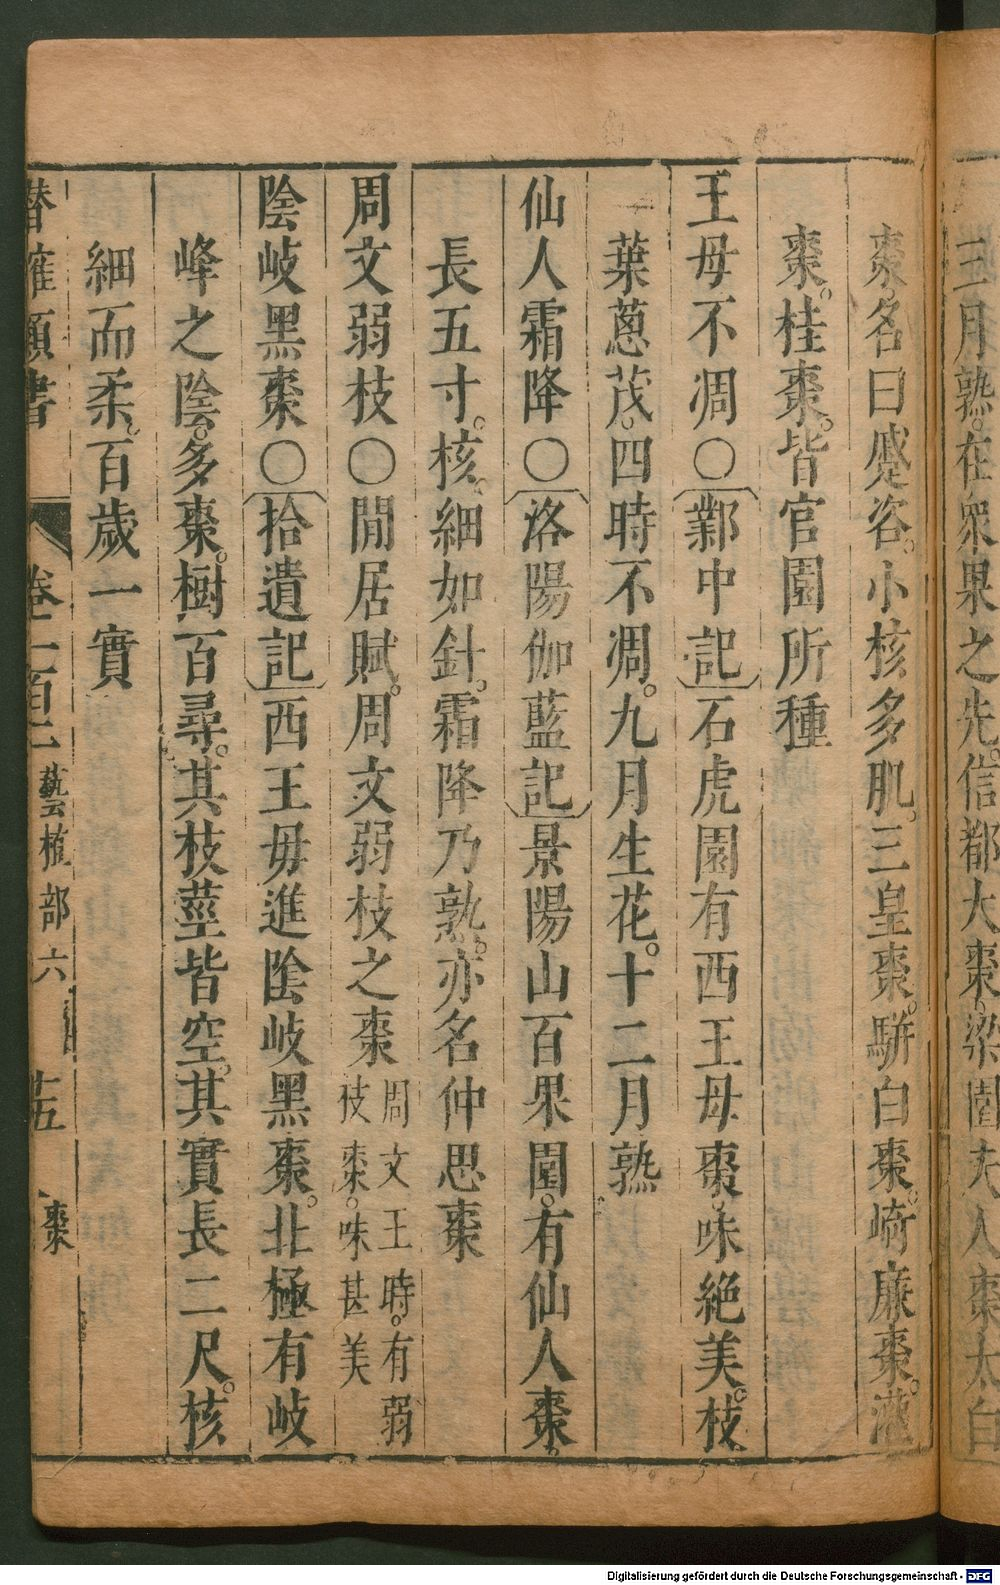 三月熟。在衆果之先。信都大棗。梁園夫人棗。太白
棗。名曰蹙咨。小核多肌。三皇棗。駢白棗。崎廉棗。灌
棗。桂棗。皆官園所種
王母不凋〇〔鄴中記〕石虎園有西王母棗。味絶美。枝
葉蔥茂。四時不凋。九月生花。十二月熟
仙人霜降〇〔洛陽伽藍記〕景陽山百果園。有仙人棗。
長五寸。核細如針。霜降乃熟。亦名仲思棗
周文弱枝〇閒居賦。周文弱枝之棗 周文王時。有弱枝棗。味甚美
陰岐黑棗〇〔拾遺記〕西王母進陰岐黑棗。北極有岐
峰之陰。多棗。樹百尋。其枝莖皆空。其實長二尺。核
細而柔。百歲一實
潛確類書 卷一百二 藝植部六 十五 棗
Digitalisierung gefördert durch die Deutsche Forschungsgemeinschaft - DFG